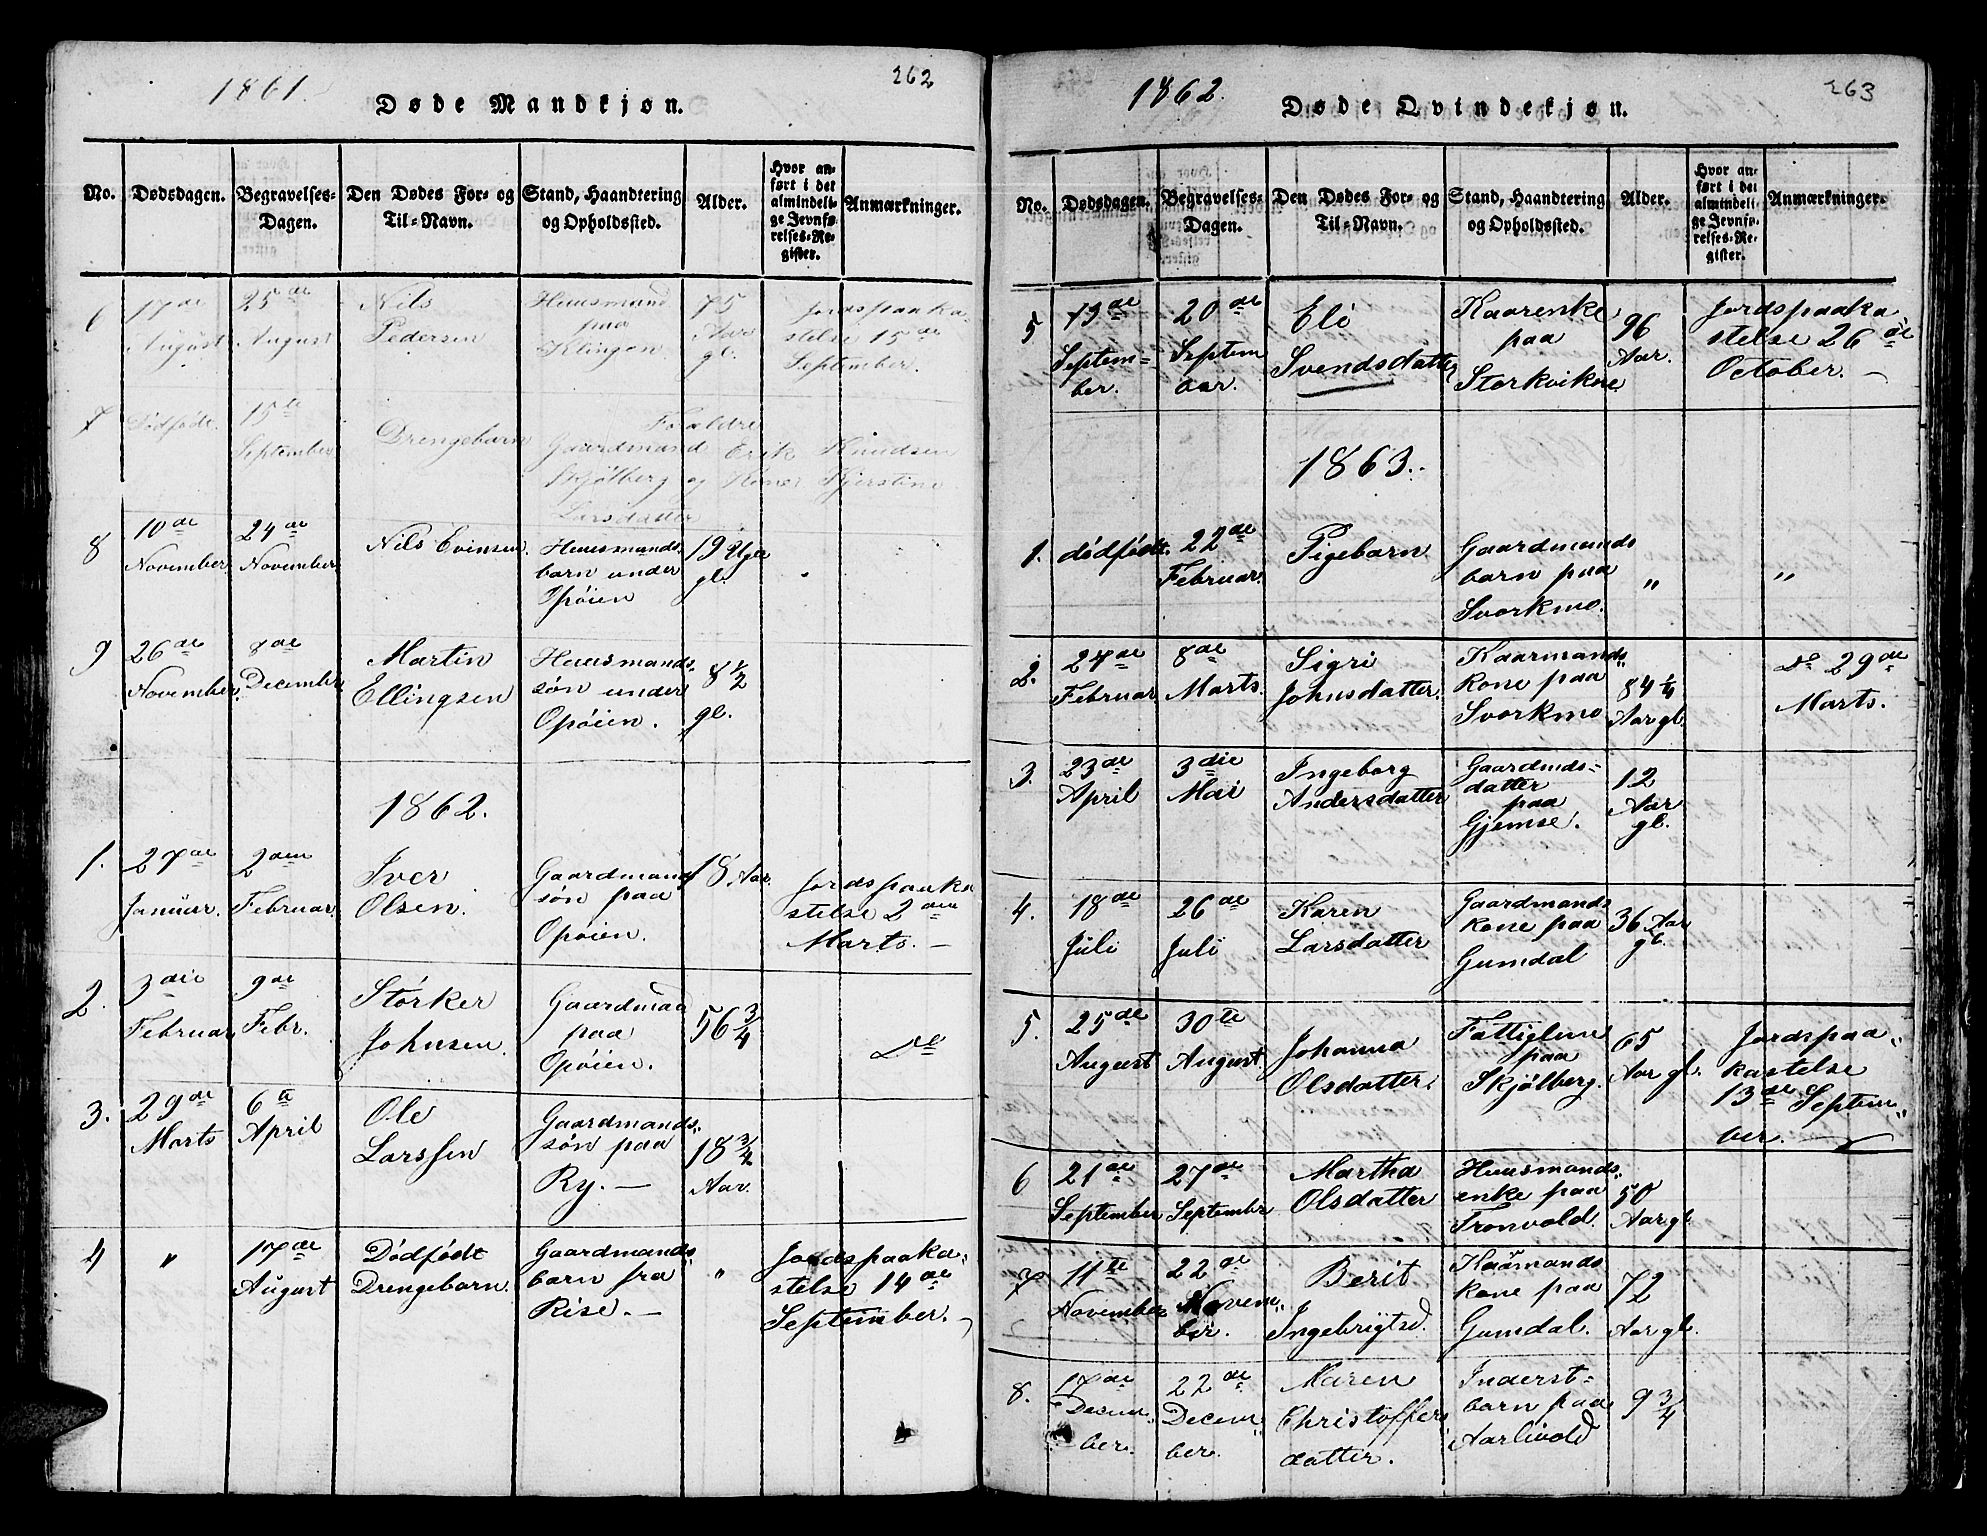 1861.
262
Døde Mandkjøn.
No.
Dødsdagen.
Begravelses-
Dagen.
Den Dødes For- og
Til-Navn.
Stand, Haandtering
og Opholdssted.
Alder.
Hvor an-
ført i det
almindeli-
ge Jevnfø-
relses-Re-
gister.
Anmærkninger.
6
17de
August
25de
August
Nils
Pedersen
Huusmand
paa
Klingen.
75
Aar
gl.
Jordspaaka-
stelse 15de
September.
7
Dødfødt.
15de
September
Drengebarn
Forældre
Gaardmand Erik Knudsen
Skjølberg og Kone Kjerstine
Larsdatter
8
10de
November
24de
November
Nils Evinsen.
Huusmands-
barn under
Opøien
19 Uger
gl.
9
26de
November
8de
December
Martin
Ellingsen
Huusmands-
søn under
Opøien.
8½
gl.
1862.
1.
27de
Januar.
2den
Februar.
Iver
Olsen.
Gaardmand
søn paa
Opøien.
18 Aar.
Jordspaaka
stelse 2den
Marts. —
2.
3die
Februar
9de
Febr.
Størker
Johnsen.
Gaardmaa
paa
Opøien.
56¾
Do
3.
29de
Marts
6te
April
Ole
Larssen
Gaardmands-
søn paa
Ry. —
18¾
Aar.
4
"
17de
August
Dødfødt
Drengebarn.
Gaardmands-
barn fra
Rise. —
"
Jordspaaka-
stelse 14de
September. —
1862.
263
Døde Qvindekjøn.
No.
Dødsdagen.
Begravelses-
Dagen.
Den Dødes For- og
Til-Navn.
Stand, Haandtering
og Opholdssted.
Alder.
Hvor an-
ført i det
almindeli-
ge Jevnfø-
relses-Re-
gister.
Anmærkninger.
5
13de
Septem-
ber.
20de
Septem
Eli
Svendsdatter
Kaarenke
paa
Storkvikne
96
Aar.
Jordspaaka
stelse 26de
October. —
1863.
1.
dødfødt.
22de
Februar.
Pigebarn
Gaardmands
barn paa
Svorkmo.
"
"
2.
27de
Februar
8de
Marts.
Sigri
Johnsdatter.
Kaarmands-
kone paa
Svorkmo
84¼
Aar gl.
Do 29de
Marts.
3.
23de
April
3die
Mai
Ingeborg
Andersdatter
Gaardmds-
datter
paa
Gjemse.
12
Aar
gl.
4.
18de
Juli
26de
Juli
Karen
Larsdatter
Gaardmands
kone paa
Gumdal
36 Aar
gl.
5.
25de
August
30te
August.
Johanna
Olsdatter.
Fattiglem
paa
Skjølberg.
65
Aar gl.
Jordspaa-
kastelse
13de Septem-
ber. —
6
21de
September
27de
Septembr
Martha
Olsdatter
Huusmands-
enke paa
Tronvold.
50
Aar gl
7
11te
November
22de
Novem-
ber.
Berit
Ingebrigtsd.
Kaarmands
kone paa
Gumdal.
72
Aar gl.
8.
17de
Decem-
ber.
22de
Decem-
ber.
Maren
Christoffers
datter.
Inderst-
barn paa
Aarlivold
9¾